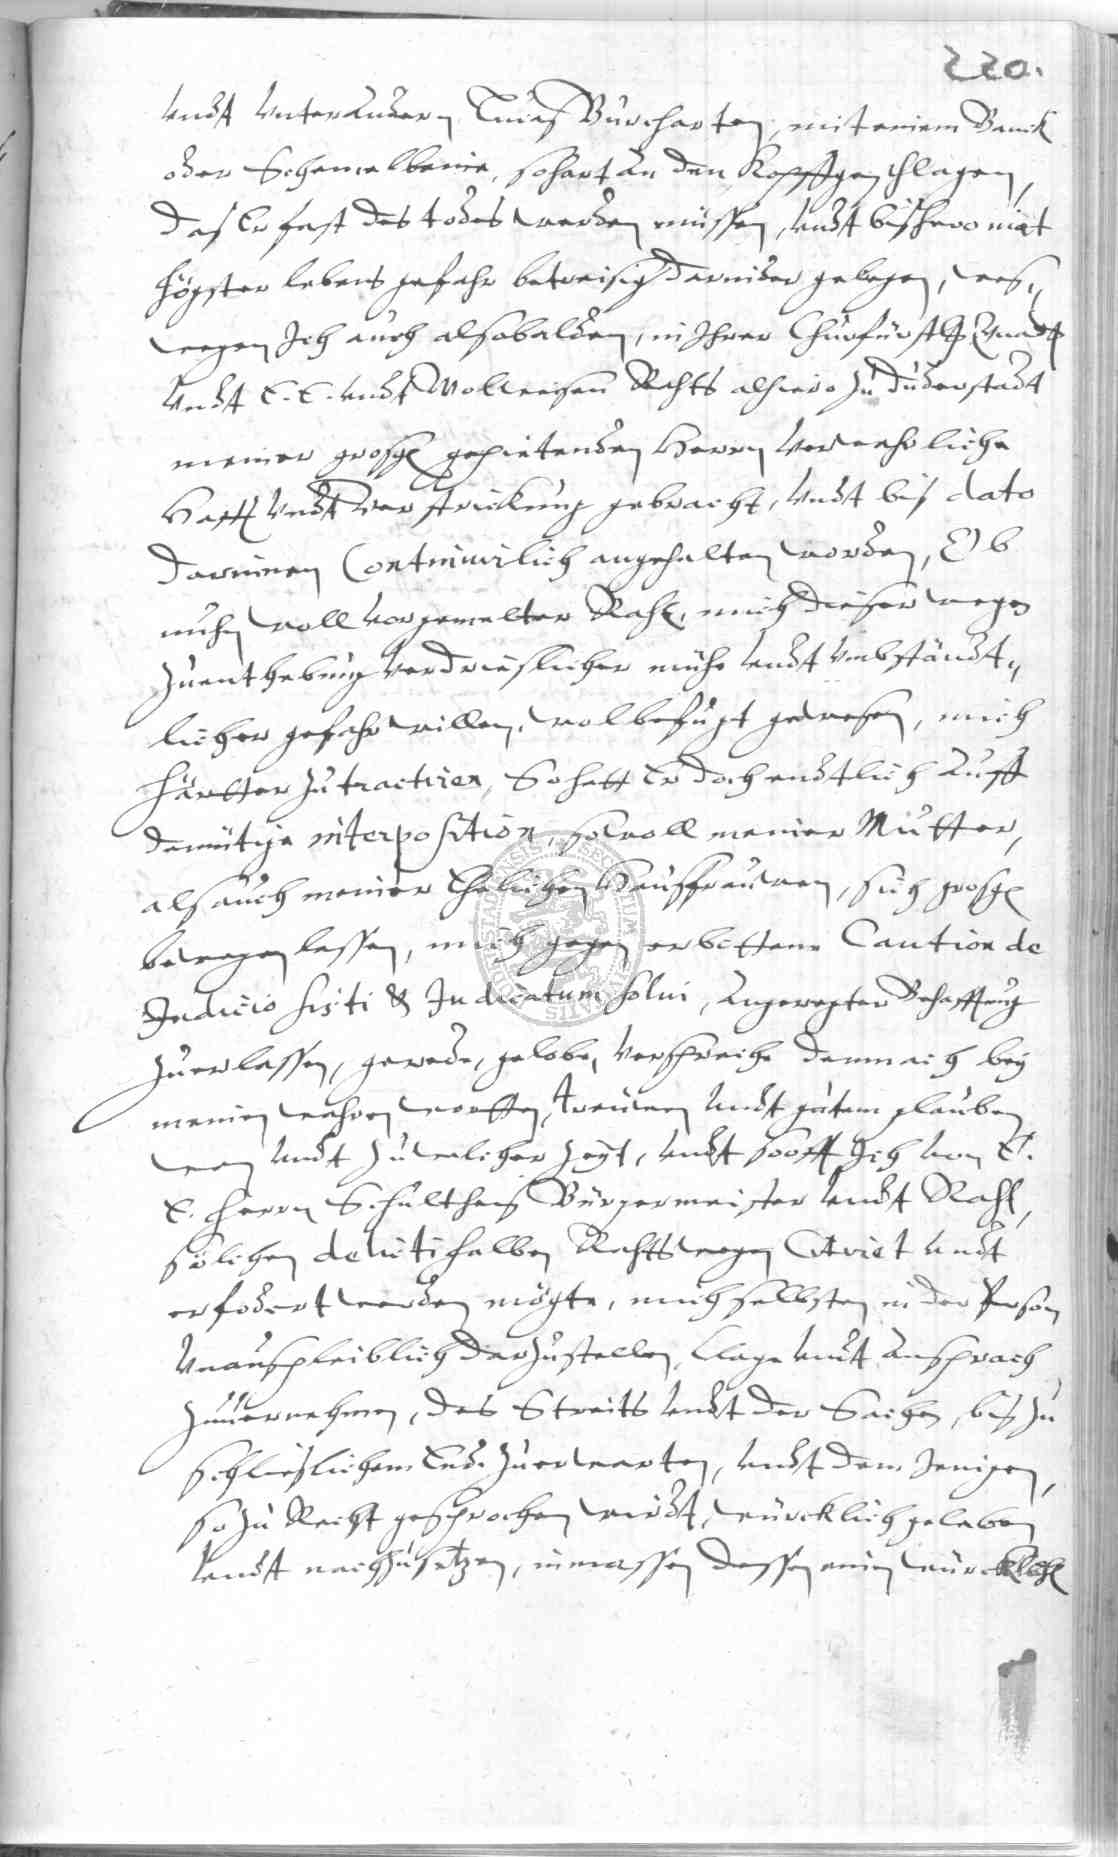 220.
undt unter andern Curdt Burcharten, mit einem Banck
oder Schemelbeine, so hart an den Kopff geschlagen,
das Er fast des todes werden müssen, undt bishero mit
högster lebens gefahr betreisig darnider gelegen, wes„
wegen Ich auch alsobalden, in Ihrer Churfürstl. Gnadt
Undt E. E. undt Wollweisen Rahts alhiero zu Duderstadt
meiner grosg. gepietenden Herrn verwahrliche
Hafft undt verstrickung gebracht, undt bis dato
darinnen Continuirlich angehalten worden, Ob
nuhn woll vorgemelter Raht, mich dieser wegen
zu enthebung verdrieslicher mühe undt umbständt„
licher gefahr willen, wolbefugt gewesen, mich
härtter zu tractiren, So hatt Er doch endtlich auff
demütige interposition, so woll meiner Mutter,
als auch meiner Ehelichen Hausfrauwen, sich grosg.
bewegen lassen, mich gegen erbottene Caution de
Iudicio sisti & Iudicatum solvi, angeregter Behafftung
zu erlassen, gerede, gelobe, verspreche demnach bey
meinen wahren wortten, treuwen undt gutem glauben
wan undt zu welicher Zeyt, undt so offt Ich von E.
E. Herrn Schultheis Bürgermeister undt Raht,
solichen delicti halben Rechts wegen Citirt undt
erfodert werden mögte, mich selbsten in der Person
Unauspleiblich darzustellen, Clage undt Ansprach
zuvernehmen, des Streits undt der Sachen, bis zu
schlieslichem Ende zuerwarten, undt dem Jenigen,
so zu Recht gesprochen wirdt, würcklich geleben
undt nachzusetzen, inmassen dessen einen würcklich